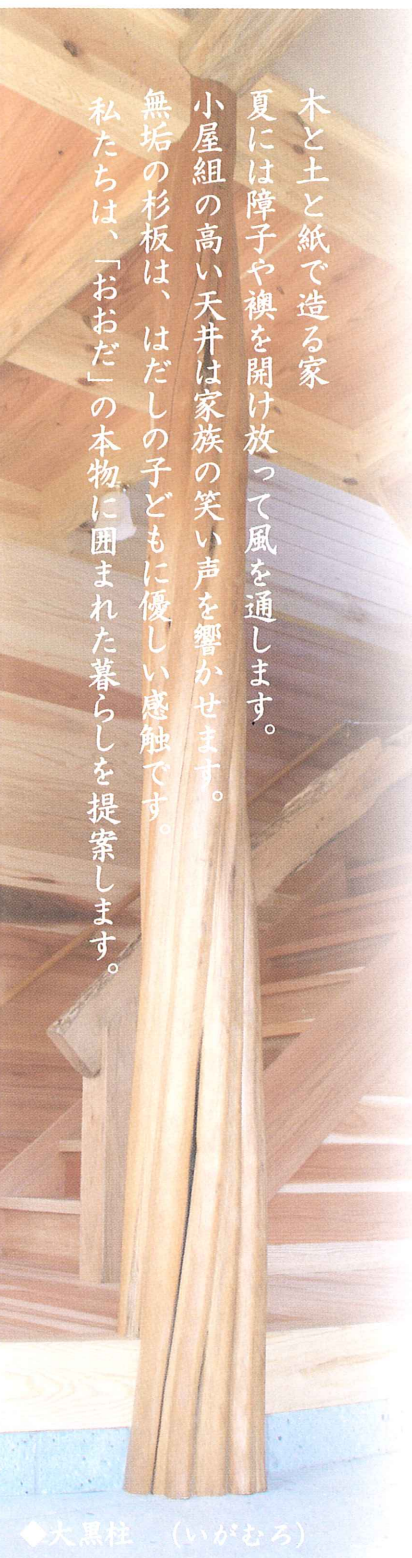 木と土と紙で造る家
夏には障子や襖を開け放って風を通します。
小屋組の高い天井は家族の笑い声を響かせます。
無垢の杉板は、はだしの子どもに優しい感触です。
私たちは、「おおだ」の本物に囲まれた暮らしを提案します。
◆大黒柱　（いがむろ）